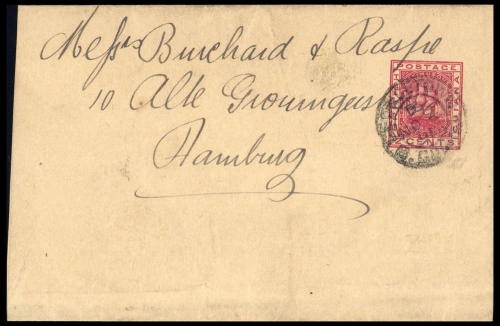 Messrs Burchard & Raspe
10 Alte Groningerstr
Hamburg
POSTAGE
GUIANA
2 CENTS